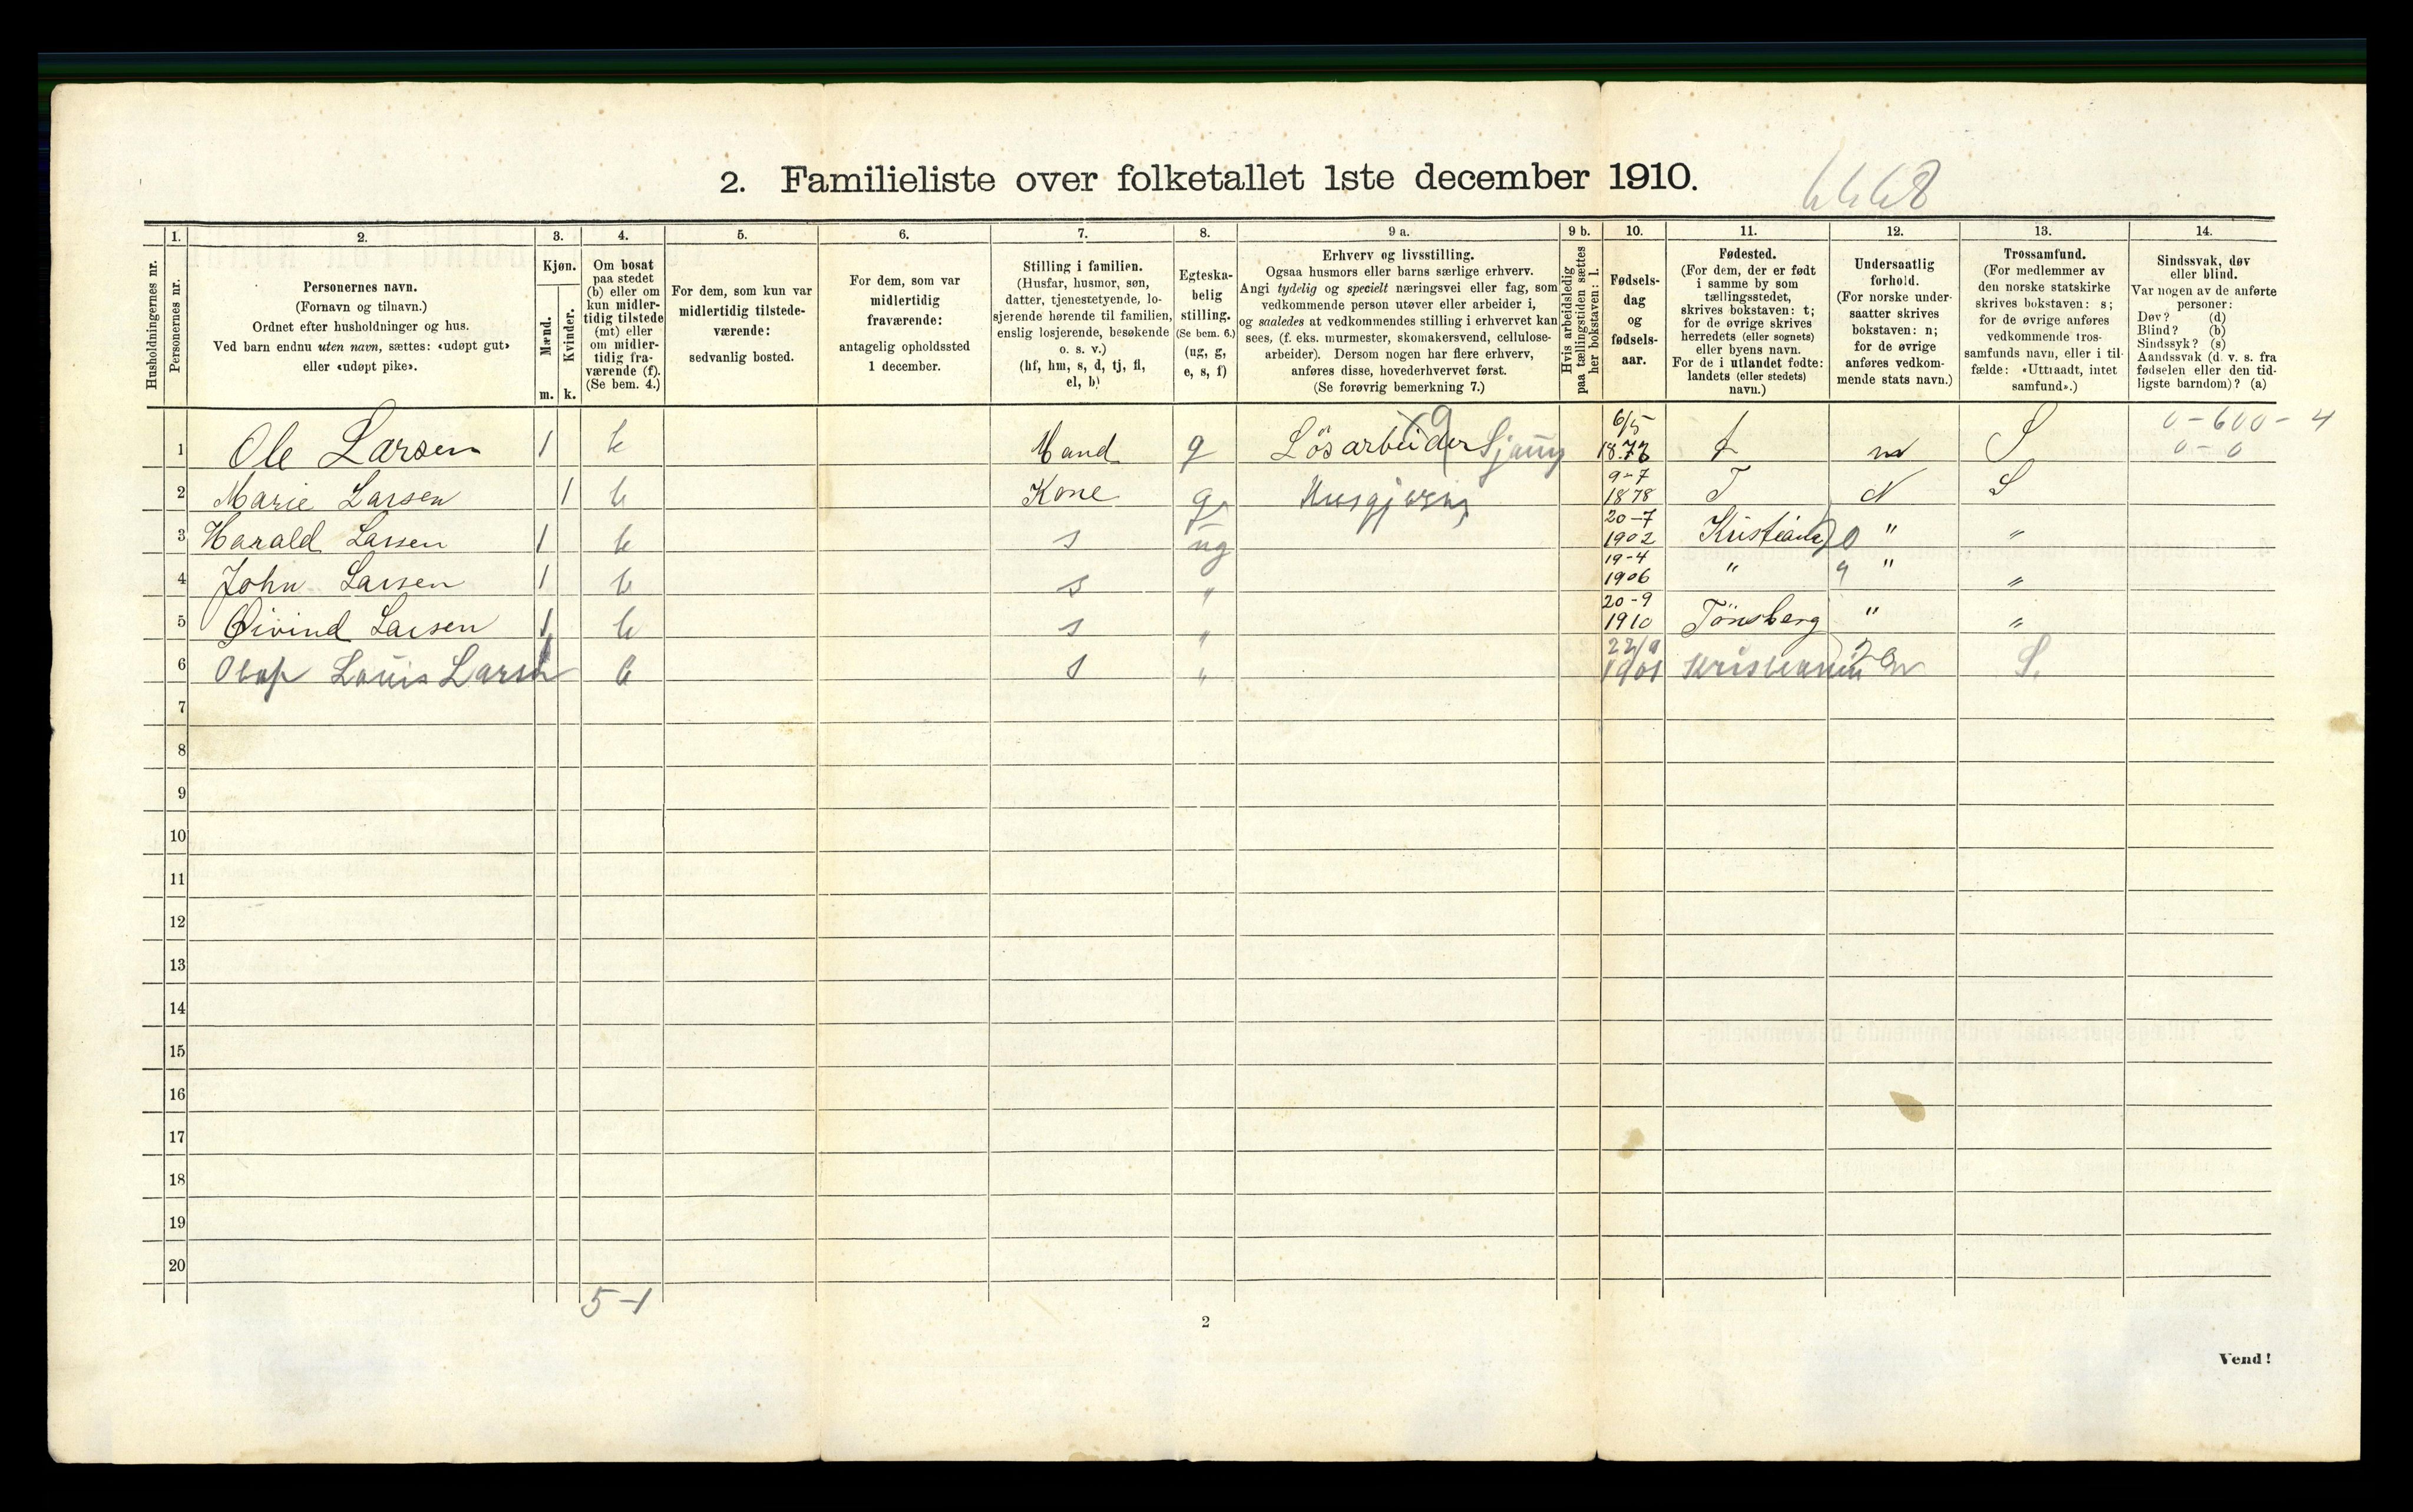 2. Familieliste over folketallet 1ste december 1910.
6668
Husholdningernes nr.
1.
Personernes nr.
2.
Personernes navn.
(Fornavn og tilnavn.)
Ordnet efter husholdninger og hus.
Ved barn endnu uten navn, sættes: «udøpt gut»
eller «udøpt pike».
3.
Kjøn.
Mænd.
Kvinder.
m. k.
4.
Om bosat
paa stedet
(b) eller om
kun midler-
tidig tilstede
(mt) eller
om midler-
tidig fra-
værende (f).
(Se bem. 4.)
5.
For dem, som kun var
midlertidig tilstede-
værende:
sedvanlig bosted.
6.
For dem, som var
midlertidig
fraværende:
antagelig opholdssted
1 december.
7.
Stilling i familien.
(Husfar, husmor, søn,
datter, tjenestetyende, lo-
sjerende hørende til familien,
enslig losjerende, besøkende
o. s. v.)
(hf, hm, s, d, tj, fl,
el, b)
8.
Egteska-
belig
stilling.
(Se bem. 6.)
(ug, g,
e, s, f)
9 a.
Erhverv og livsstilling.
Ogsaa husmors eller barns særlige erhverv.
Angi tydelig og specielt næringsvei eller fag, som
vedkommende person utøver eller arbeider i,
og saaledes at vedkommendes stilling i erhvervet kan
sees, (f. eks. murmester, skomakersvend, cellulose-
arbeider). Dersom nogen har flere erhverv,
anføres disse, hovederhvervet først.
(Se forøvrig bemerkning 7.)
9 b.
Hvis arbeidsledig
paa tællingstiden sættes
her bokstaven: l.
10.
Fødsels-
dag
og
fødsels-
aar.
11.
Fødested.
(For dem, der er født
i samme by som
tællingsstedet,
skrives bokstaven: t;
for de øvrige skrives
herredets (eller sognets)
eller byens navn.
For de i utlandet fødte:
landets (eller stedets)
navn.)
12.
Undersaatlig
forhold.
(For norske under-
saatter skrives
bokstaven: n;
for de øvrige
anføres vedkom-
mende stats navn.)
13.
Trossamfund.
(For medlemmer av
den norske statskirke
skrives bokstaven: s;
for de øvrige anføres
vedkommende tros-
samfunds navn, eller i til-
fælde: «Uttraadt, intet
samfund».)
14.
Sindssvak, døv
eller blind.
Var nogen av de anførte
personer:
Døv? (d)
Blind? (b)
Sindssyk? (s)
Aandssvak (d. v. s. fra
fødselen eller den tid-
ligste barndom)? (a)
0-600-4
0-0
1 Ole Larsen 1 b Mand g Lösarbeider Sjauer 6/5 t n S
2 Marie Larsen 1 b Kone g Husgjerning 9-7 1878 T N S
3 Harald Larsen 1 b s ug 20-7 1902 Kristiania 0 " "
4 John Larsen 1 b s " 19-4 1906 " " "
5 Øivind Larsen 1 b s " 20-9 1910 Tönsberg " "
6 Olaf Louis Larsen 1 b s " 1901 Kristiania n S.
7
8
9
10
11
12
13
14
15
16
17
18
19
20
5-1
2
Vend!